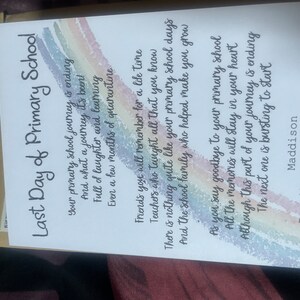 Last Day of Primary School
Your primary school journey is ending
And what a journey it's been!
Full of laughter and learning
Even a few months of quarantine
Friends you will remember for a life time
Teachers who taught all that you know
There is nothing quite like your primary school days
And the school family who helped make you grow
As you say goodbye to your primary school
All the memories will stay in your heart
Although this part of your journey is ending
The next one is bursting to start
Maddison